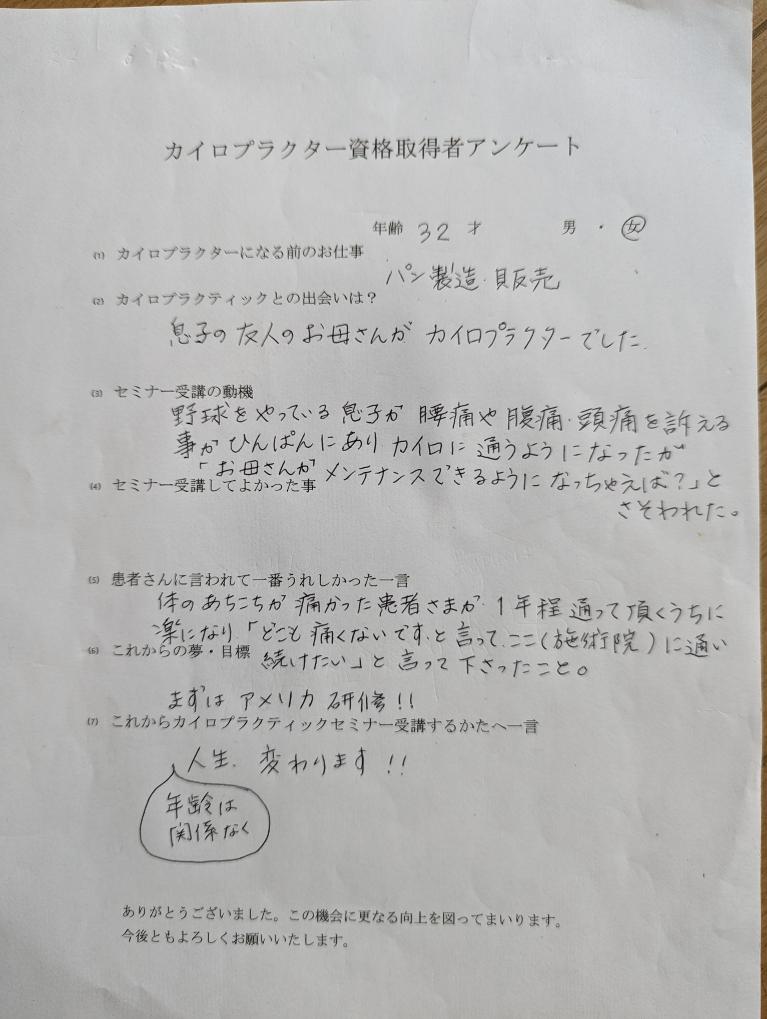 カイロプラクター資格取得者アンケート
年齢 32 才 男 ・ 女
(1) カイロプラクターになる前のお仕事
パン製造・販売
(2) カイロプラクティックとの出会いは？
息子の友人のお母さんが カイロプラクターでした.
(3) セミナー受講の動機
野球をやっている息子が 腰痛や腹痛・頭痛を訴える
事が ひんぱんにあり カイロに通うようになったが
「お母さんが メンテナンスできるように なっちゃえば？」と
(4) セミナー受講してよかった事
さそわれた。
(5) 患者さんに言われて一番うれしかった一言
体のあちこちが痛かった患者さまが、1年程通って頂くうちに
楽になり「どこも痛くないです、と言って、ここ(施術院)に通い
続けたい」と言って下さったこと。
(6) これからの夢・目標
まずは アメリカ 研修!!
(7) これからカイロプラクティックセミナー受講するかたへ一言
人生、変わります!!
年齢は
関係なく
ありがとうございました。この機会に更なる向上を図ってまいります。
今後ともよろしくお願いいたします。